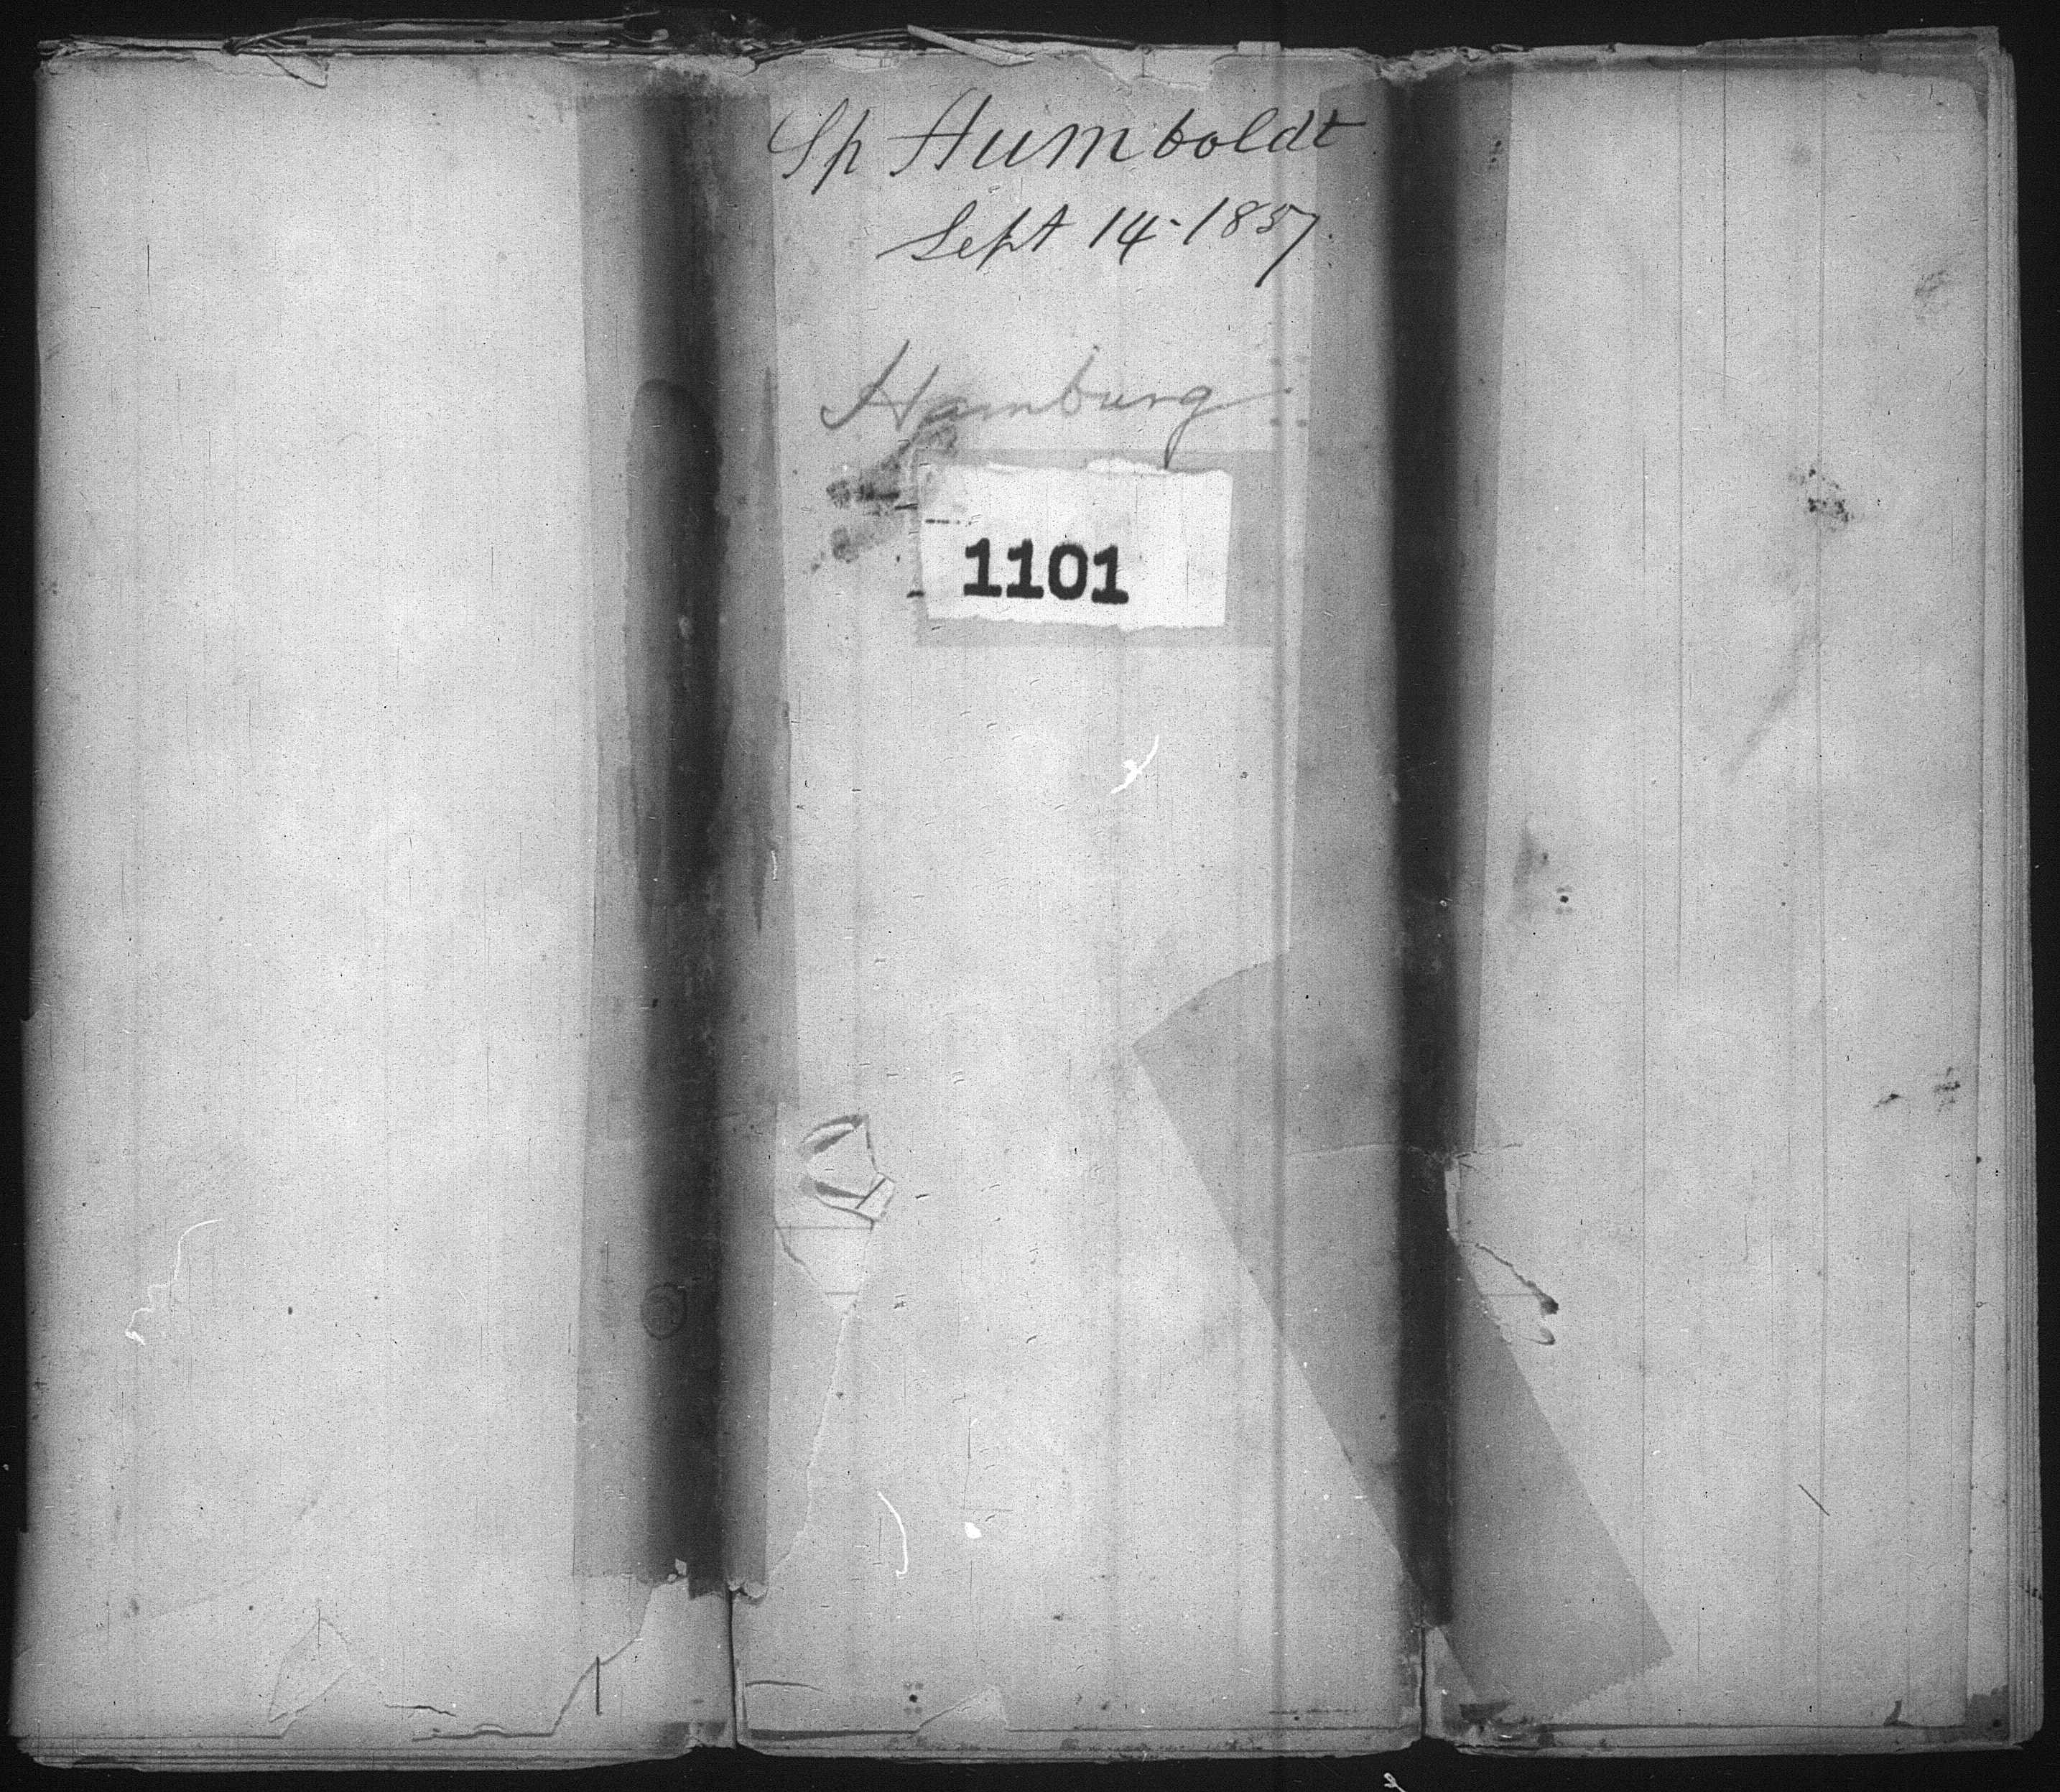 Sp Humboldt
Sept 14-1857.
Hamburg
1101